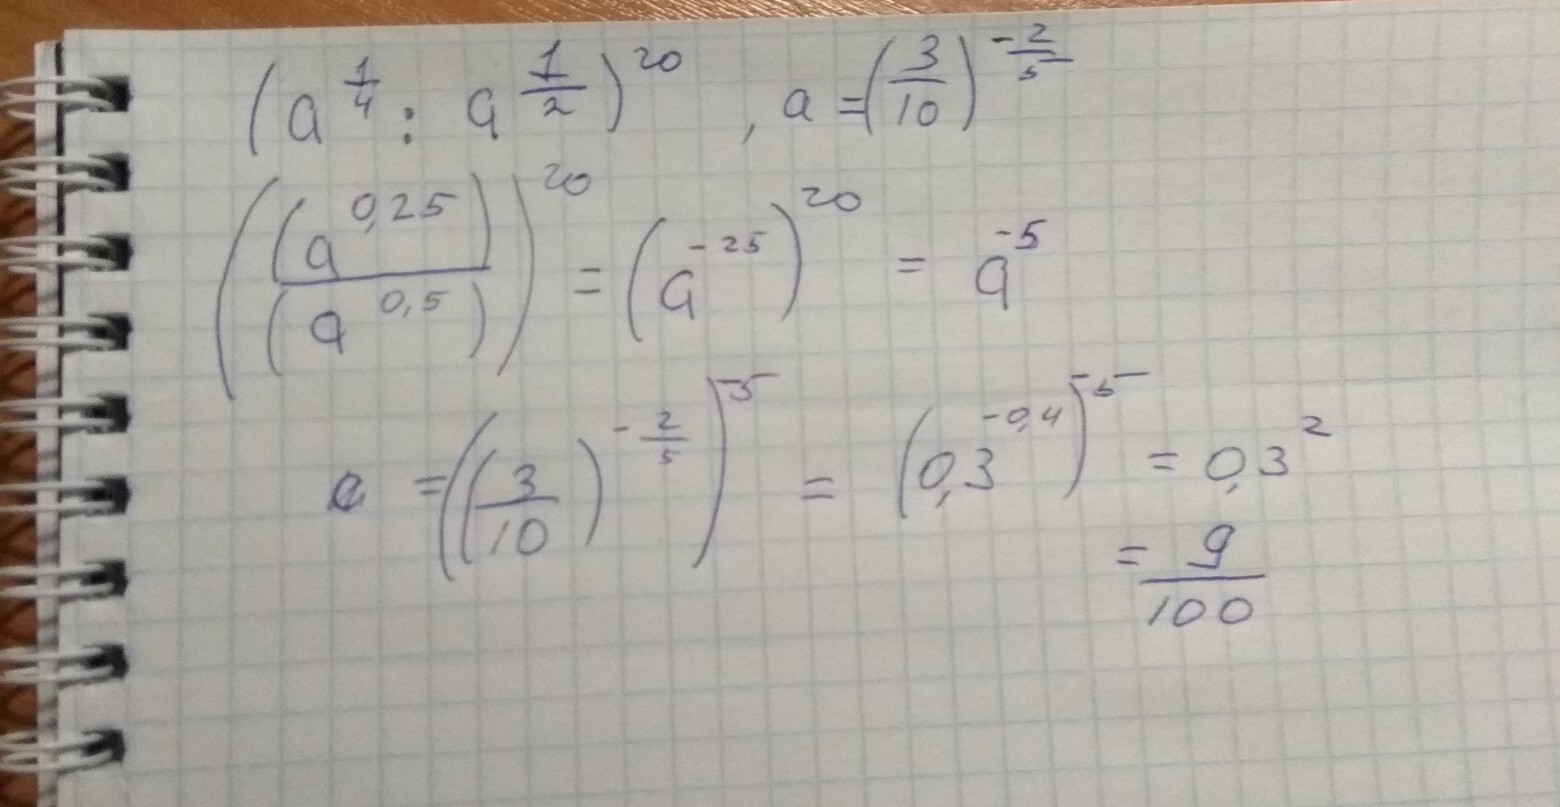 (a^(1/4) : a^(1/2))^20 , a = (3/10)^(-2/5)
((a^0,25)/(a^0,5))^20 = (a^-25)^20 = a^-5
a = ((3/10)^(-2/5))^-5 = (0,3^-0,4)^-5 = 0,3^2
= 9/100